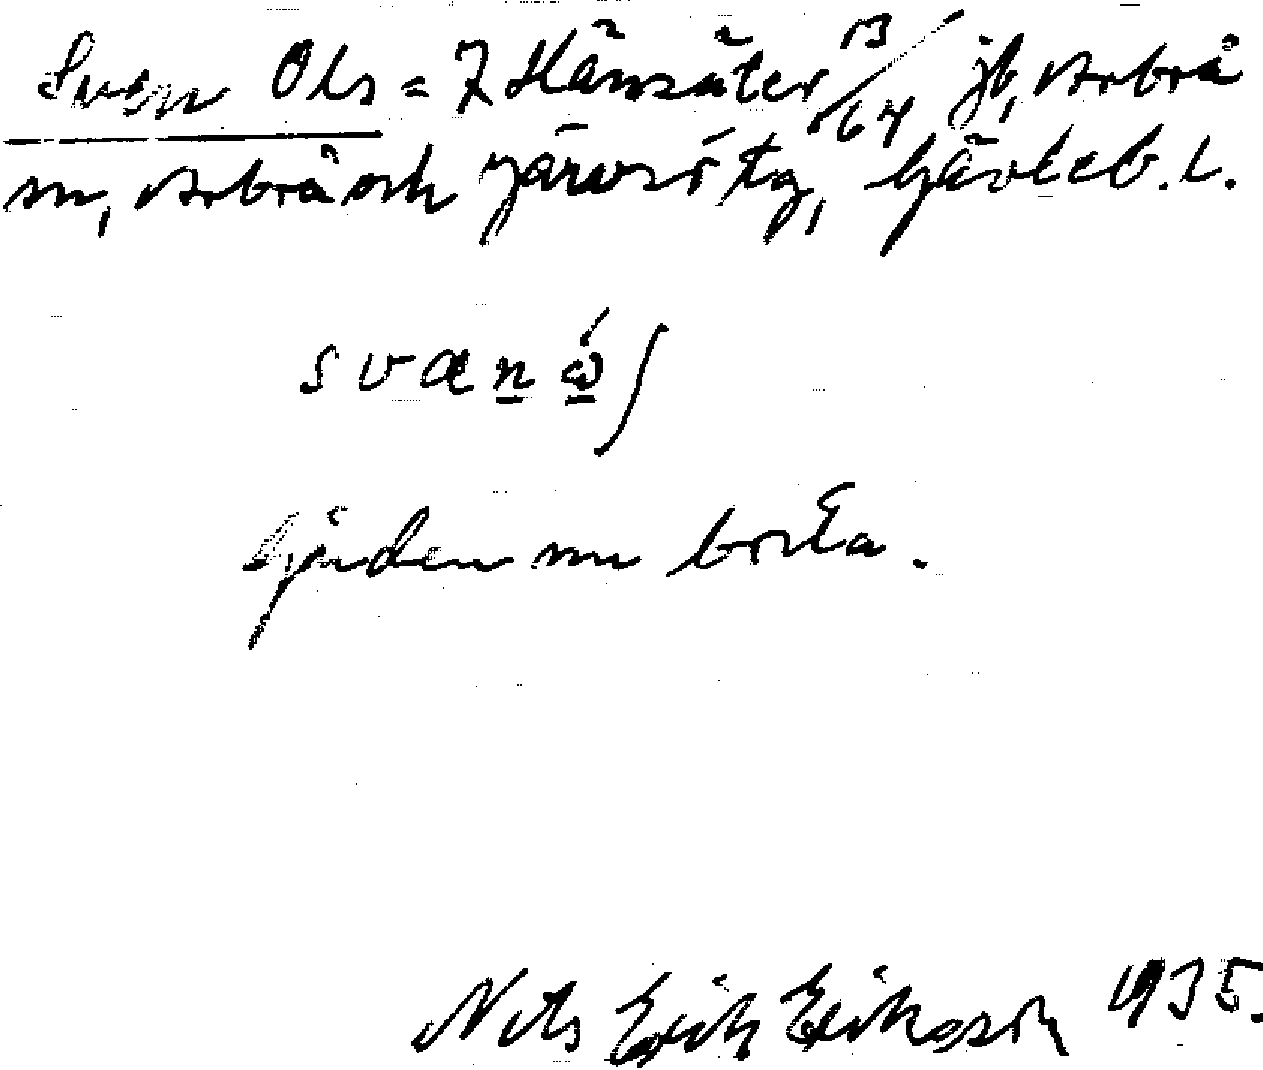 Sven Ols = 7 Hänsäter 13/64 jb, Arbrå
sn, Arbrå och Järvsö tg, Gävleb. l.
svæn ώʃ
Gården nu borta.
Nils Erik Eriksson 1935.